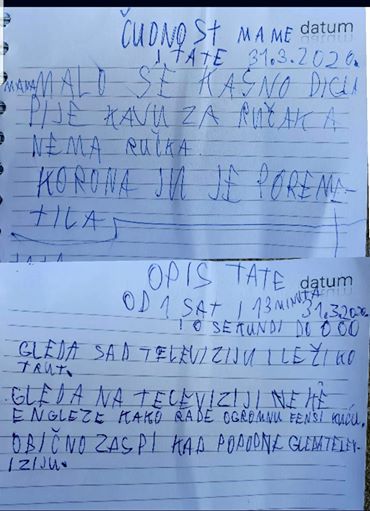 ČUDNOST MAME datum
I TATE 31.3.2020.
MAMA MALO SE KASNO DIGLA
PIJE KAVU ZA RUČAK A
NEMA RUČKA.
KORONA JU JE POREME-
TILA
OPIS TATE datum
OD 1 SAT I 13 MINUTA 31.3.2020.
I 0 SEKUNDI DO 0 00
GLEDA SAD TELEVIZIJU I LEŽI KO
TRUT.
GLEDA NA TELEVIZIJI NEKE
ENGLEZE KAKO RADE OGROMNU FENSI KUĆU.
OBIČNO ZASPI KAD POPODNE GLEDA TELEV-
IZIJU.